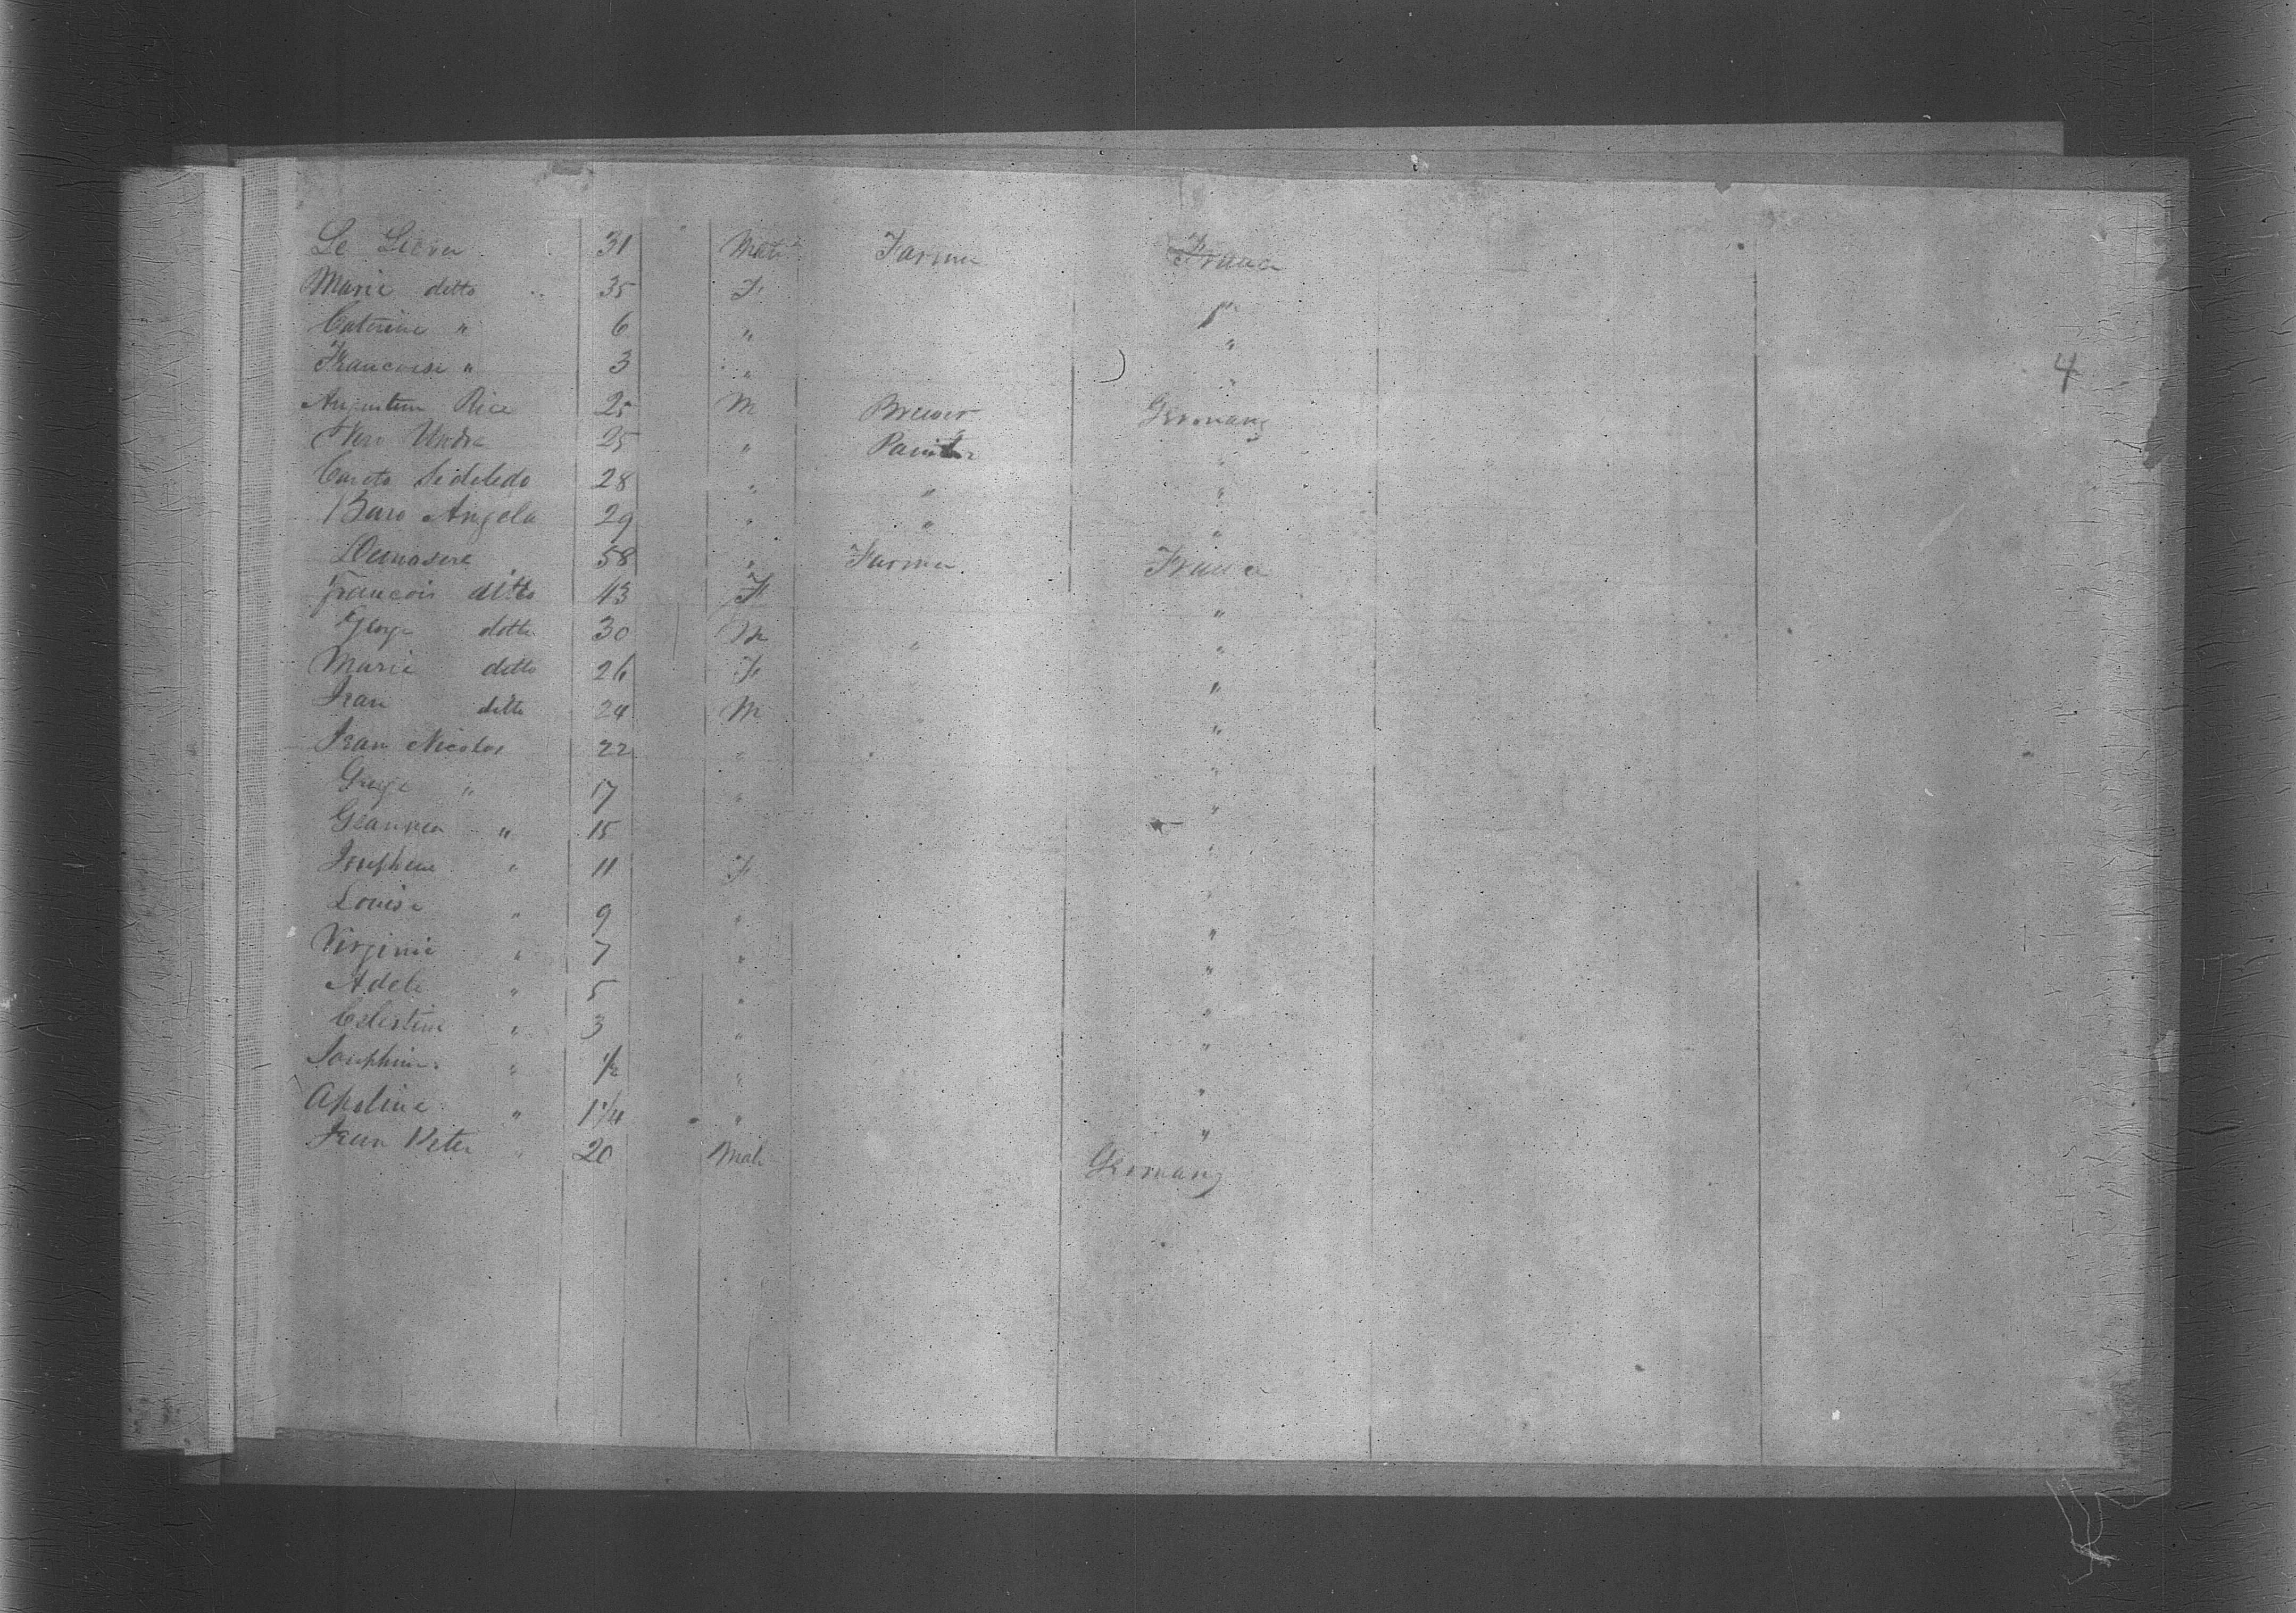 Le 31 Male Farmer France
Marie ditto 35 F "
Caterine " 6 " "
Francoise " 3 " "
4
Rice 25 M Brewer Germany
25 " Painter "
28 " " "
Angelo 29 " " "
58 " Farmer France
Francois ditto 43 F "
George ditto 30 M " "
Marie ditto 26 F "
Jean ditto 24 M "
Jean Nicolas 22 " "
" 17 " "
" 15 "
Josephine " 11 F "
Louise " 9 " "
Virginie " 7 " "
Adele " 5 " "
Celestine " 3 " "
Josephine " 1/2 " "
Apoline " 1 1/4 " "
Jean Peter " 20 Male Germany